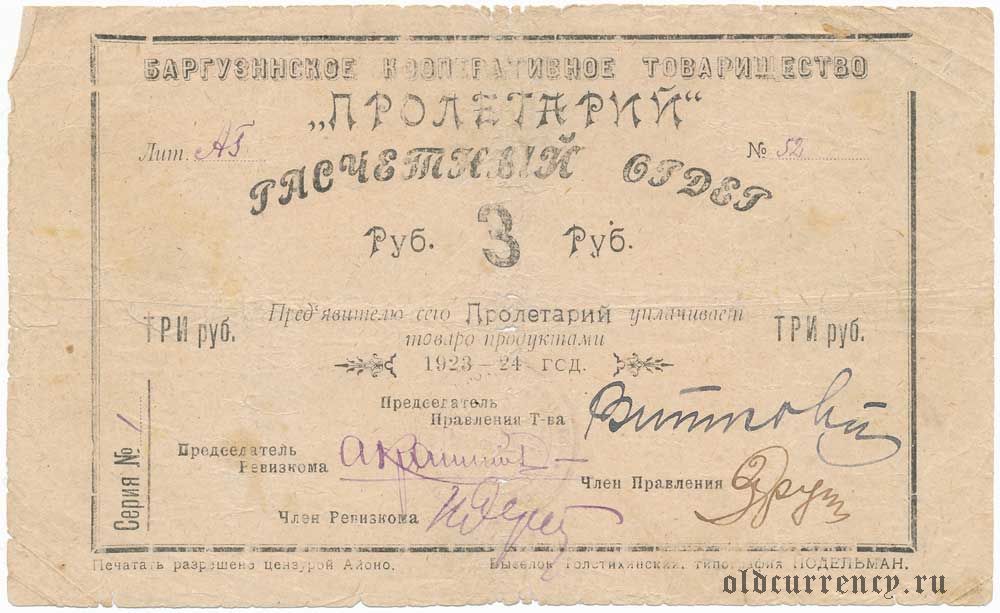 БАРГУЗИНСКОЕ КООПЕРАТИВНОЕ ТОВАРИЩЕСТВО
„ПРОЛЕТАРИЙ“
Лит. АБ № 52
РАСЧЕТНЫЙ ОРДЕР
Руб. 3 Руб.
Пред‘явителю сего Пролетарий уплачивает
товаро продуктами
ТРИ руб. ТРИ руб.
1923—24 год.
Председатель
Правления Т-ва
Председатель
Ревизкома
Член Правления
Член Ревизкома
Серия № 1
Печатать разрешено цензурой Айоно. Выселок Толстихинский, типография ПОДЕЛЬМАН.
oldcurrency.ru